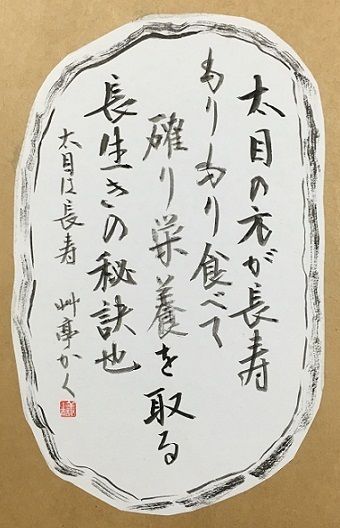 太目の方が長寿
もりもり食べて
確り栄養を取る
長生きの秘訣也
太目は長寿
艸亭かく